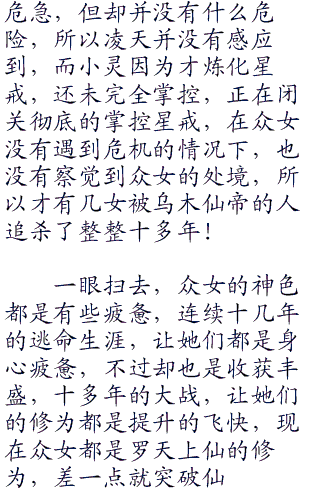 危急，但却并没有什么危
险，所以凌天并没有感应
到，而小灵因为才炼化星
戒，还未完全掌控，正在闭
关彻底的掌控星戒，在众女
没有遇到危机的情况下，也
没有察觉到众女的处境，所
以才有几女被乌木仙帝的人
追杀了整整十多年！
一眼扫去，众女的神色
都是有些疲惫，连续十几年
的逃命生涯，让她们都是身
心疲惫，不过却也是收获丰
盛，十多年的大战，让她们
的修为都是提升的飞快，现
在众女都是罗天上仙的修
为，差一点就突破仙